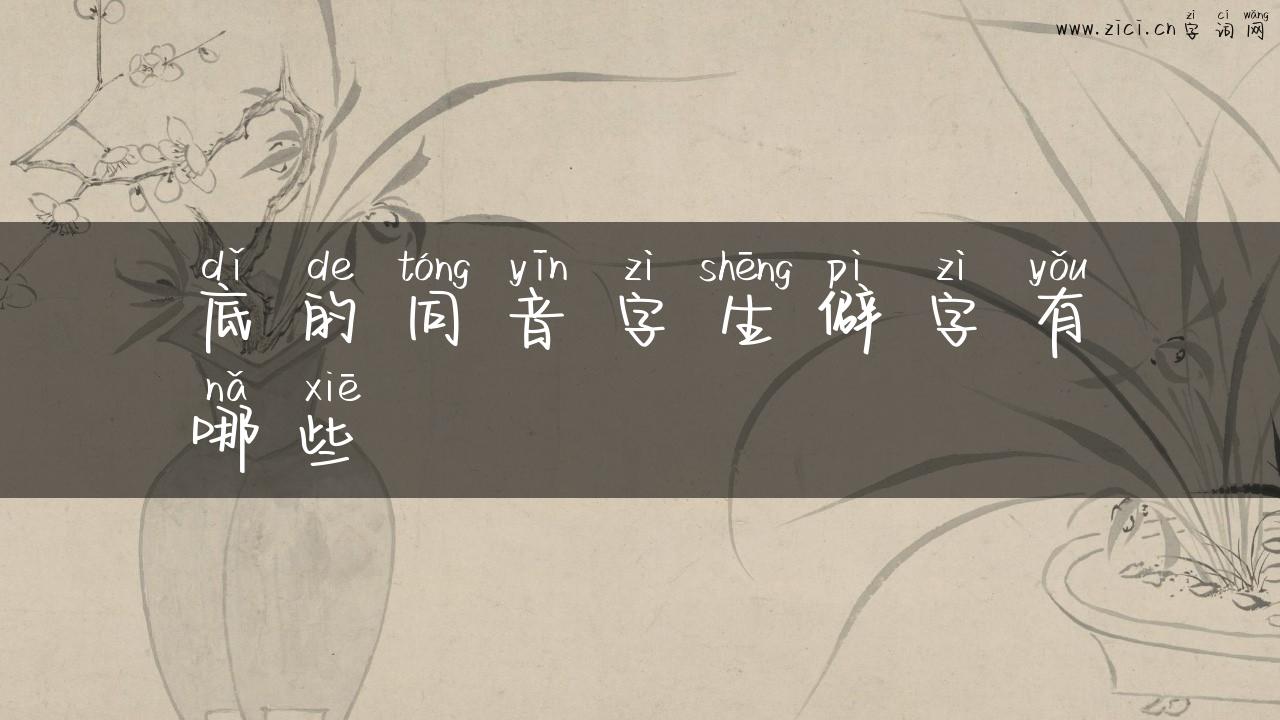 zì cí wǎng
www.zici.cn 字 词 网
dǐ de tóng yīn zì shēng pì zì yǒu
底 的 同 音 字 生 僻 字 有
nǎ xiē
哪 些